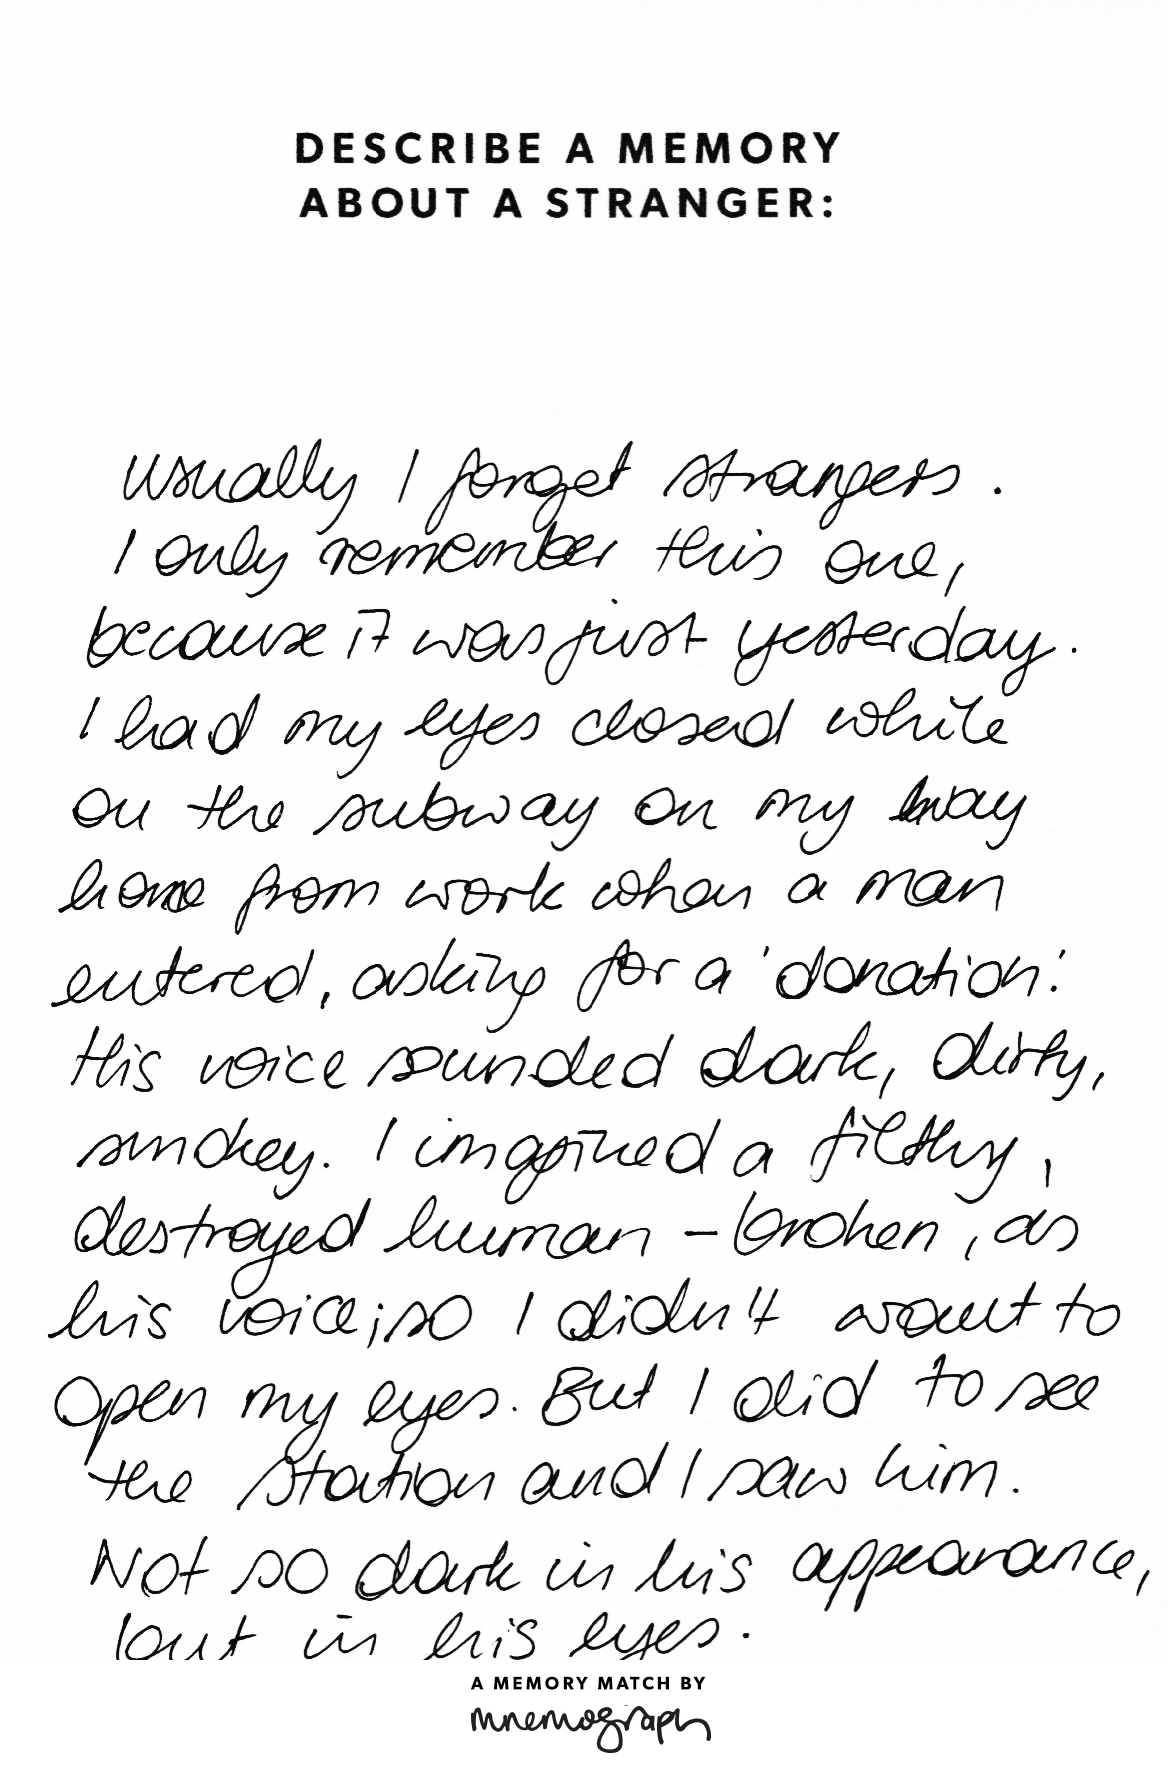 DESCRIBE A MEMORY
ABOUT A STRANGER:
Usually I forget strangers.
I only remember this one,
because it was just yesterday.
I had my eyes closed while
on the subway on my way
home from work when a man
entered, asking for a 'donation'.
His voice sounded dark, dirty,
smokey. I imagined a filthy,
destroyed human – broken, as
his voice; so I didn't want to
open my eyes. But I did to see
the station and I saw him.
Not so dark in his appearance,
but in his eyes.
A MEMORY MATCH BY
mnemograph